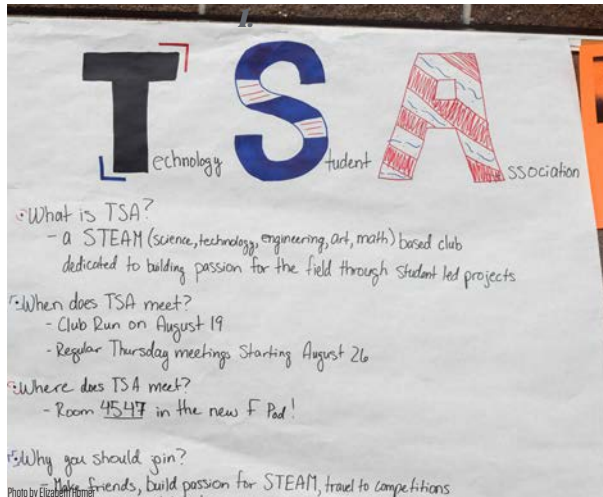 1.
TSA
Technology Student Association
What is TSA?
- a STEAM (science, technology, engineering, art, math) based club
dedicated to building passion for the field through student led projects
When does TSA meet?
- Club Run on August 19
- Regular Thursday meetings Starting August 26
Where does TSA meet?
- Room 4547 in the new F Pod!
Why you should join?
- Make friends, build passion for STEAM, travel to competitions
Photo by Elizabeth Horner